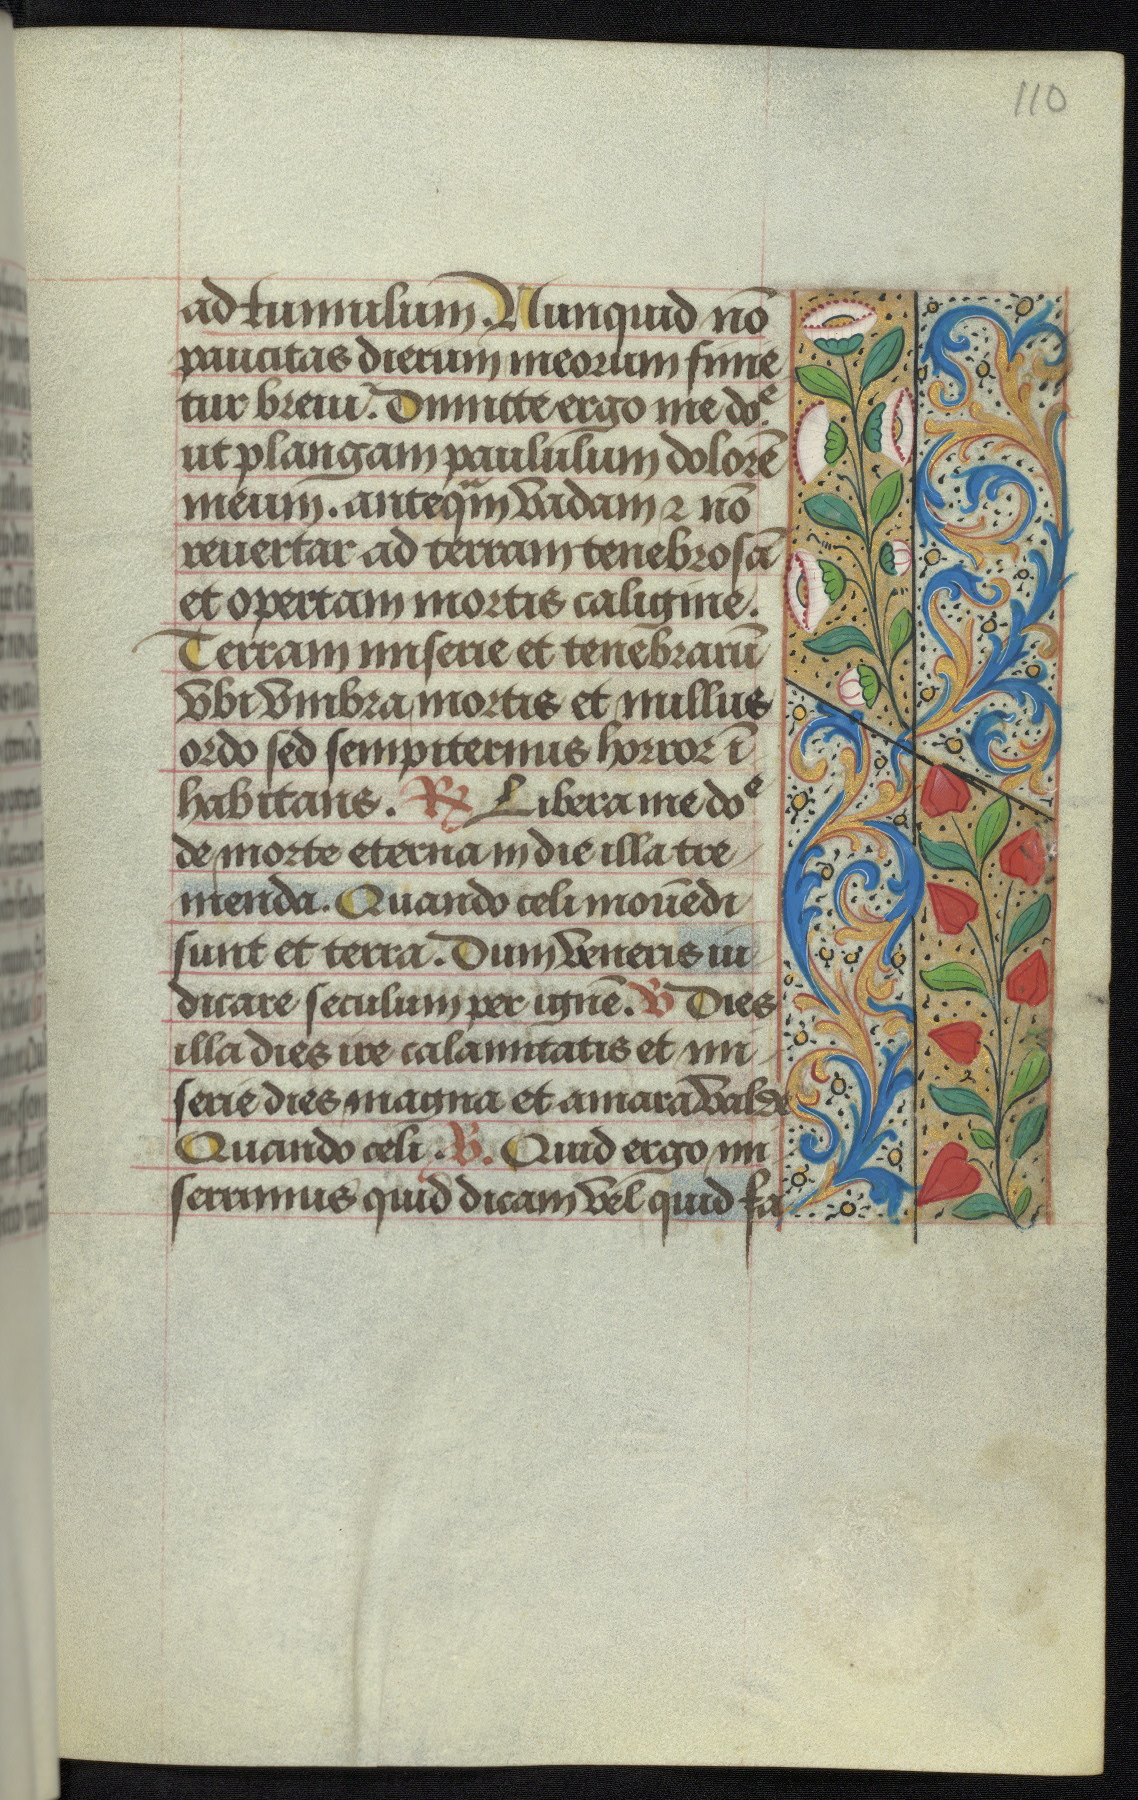 110
ad tumulum. Nunquid nō
paucitas dierum meorum finie
tur breui. Dimitte ergo me doᵉ.
ut plangam paululum dolorē
meum. anteqᵃm vadam ⁊ nō
reuertar ad terram tenebrosā
et opertam mortis caligine.
Terram miserie et tenebrarū
vbi vmbra mortis et nullus
ordo sed sempiternus horror ī
habitans. ℟ Libera me doᵉ
de morte eterna in die illa tre
menda. Quando celi mouēdi
sunt et terra. Dum veneris iu
dicare seculum per ignē. ℣ Dies
illa dies ire calamitatis et mi
serie dies magna et amara valde
Quando celi. ℣. Quid ergo mi
serrimus quid dicam vel quid fa